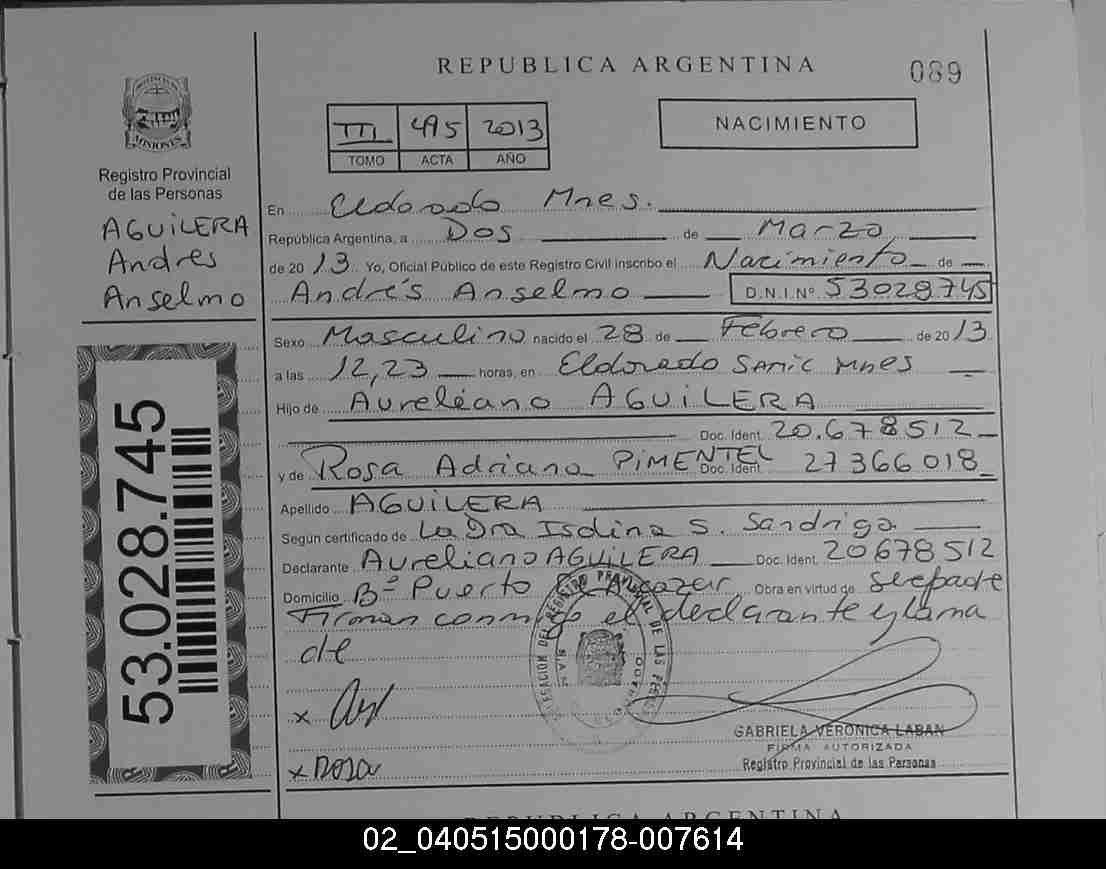 REPUBLICA ARGENTINA
089
MISIONES
Registro Provincial
de las Personas
AGUILERA
Andres
Anselmo
53.028.745
III 495 2013
TOMO ACTA AÑO
NACIMIENTO
En Eldorado Mnes.
República Argentina, a Dos de Marzo
de 2013 Yo, Oficial Público de este Registro Civil inscribo el Nacimiento de
Andrés Anselmo D.N.I.Nº 53028745
Sexo Masculino nacido el 28 de Febrero de 2013
a las 12,23 horas, en Eldorado SAMIC Mnes
Hijo de Aureliano AGUILERA
Doc. Ident. 20.678512
y de Rosa Adriana PIMENTEL Doc. Ident. 27366018
Apellido AGUILERA
Según certificado de La Dra Isolina S. Sandrigo
Declarante Aureliano AGUILERA Doc. Ident. 20678512
Domicilio Bº Puerto El Alcazar Obra en virtud de
Firman conmigo el declarante y la ma
dre
x
x Rosa
GABRIELA VERONICA LABAN
FIRMA AUTORIZADA
Registro Provincial de las Personas
REPUBLICA ARGENTINA
02_040515000178-007614